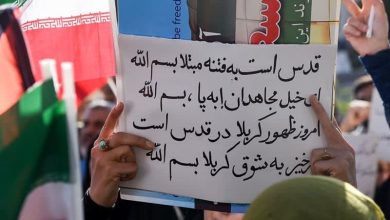 be free
ند این
قدس است به فتنه مبتلا بسم الله
ای خیل مجاهدان به پا، بسم الله
امروز ظهور کربلا در قدس است
برخیز به شوق کربلا بسم الله